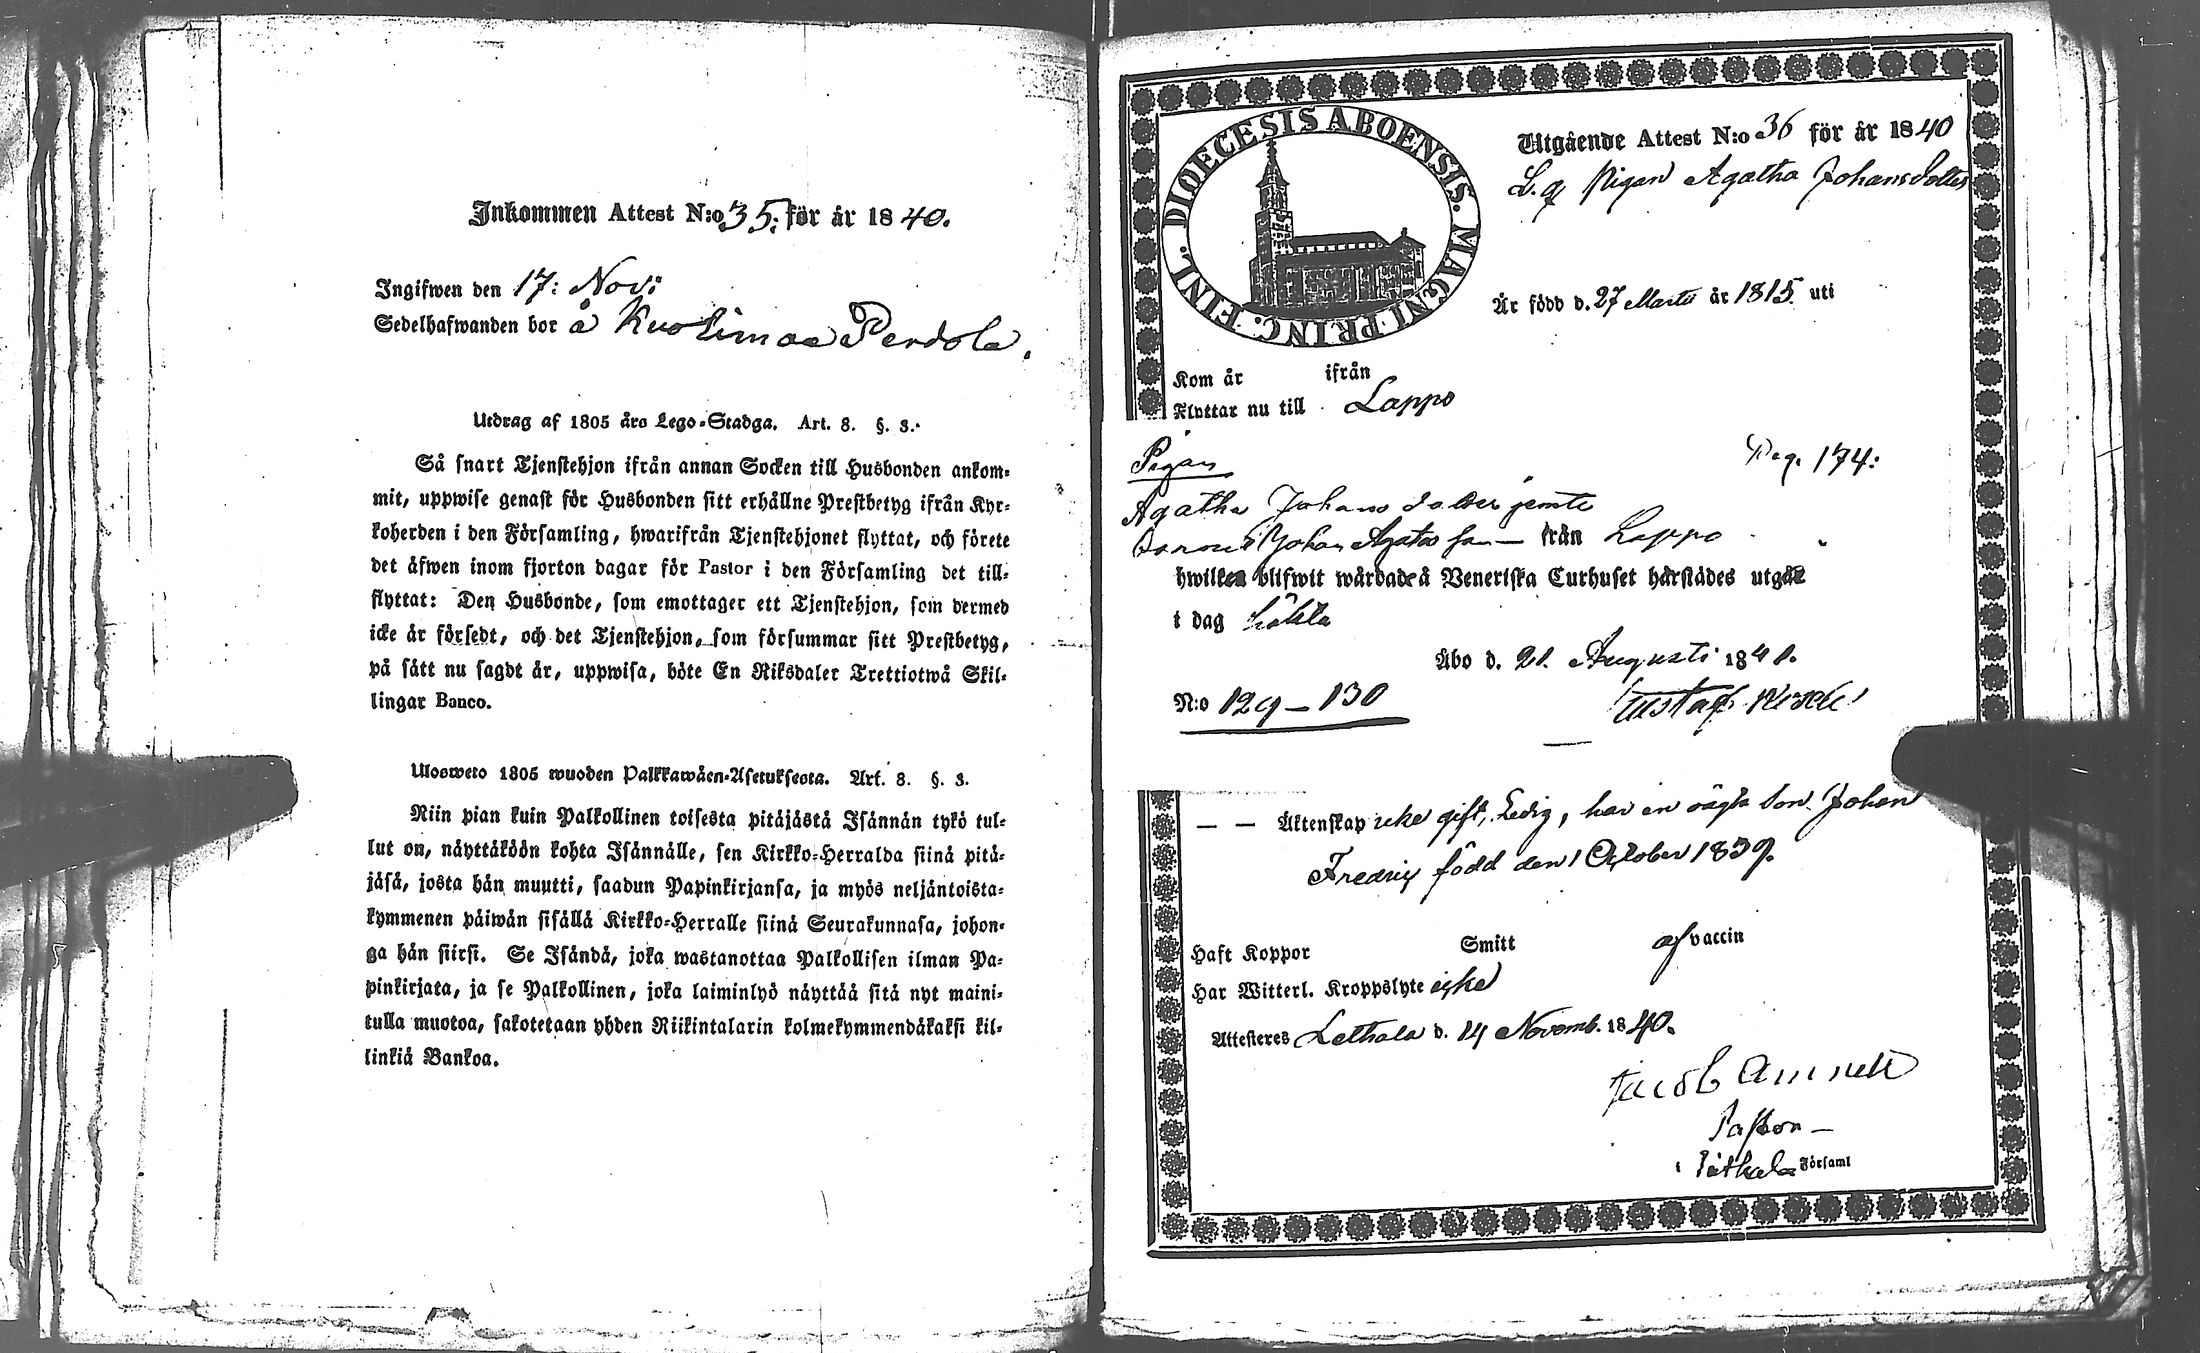 Inkommen Attest N:o 35. för år 1840.
Ingifwen den 17: Nov:
Sedelhafwanden bor å Kuolimaa Perdola.
Utdrag af 1805 års Lego-Stadga. Art. 8. §. 3.
Så snart Tjenstehjon ifrån annan Socken till Husbonden ankom-
mit, uppwise genast för Husbonden sitt erhållne Prestbetyg ifrån Kyr-
koherden i den Församling, hwarifrån Tjenstehjonet flyttat, och förete
det äfwen inom fjorton dagar för Pastor i den Församling det till-
flyttat: Den Husbonde, som emottager ett Tjenstehjon, som dermed
icke är försedt, och det Tjenstehjon, som försummar sitt Prestbetyg,
på sätt nu sagdt är, uppwisa, böte En Riksdaler Trettiotwå Skil-
lingar Banco.
Ulosweto 1805 wuoden Palkkawäen-Asetuksesta. Art. 8. §. 3.
Niin pian kuin Palkollinen toisesta pitäjästä Isännän tykö tul-
lut on, näyttäköön kohta Isännälle, sen Kirkko-Herralda siinä pitä-
jäsä, josta hän muutti, saadun Papinkirjansa, ja myös neljäntoista-
kymmenen päiwän sisällä Kirkko-Herralle siinä Seurakunnasa, johon-
ga hän siirsi. Se Isändä, joka wastanottaa Palkollisen ilman Pa-
pinkirjata, ja se Palkollinen, joka laiminlyö näyttää sitä nyt maini-
tulla muotoa, sakotetaan yhden Riikintalarin kolmekymmendäkaksi kil-
linkiä Bankoa.
DIOECESIS ABOENSIS. MAGNI PRINC. FINL.
Utgående Attest N:o 36 för år 1840
Pigan Agatha Johansdotter
Är född d. 27 Martii år 1815 uti
Kom år ifrån
Flyttar nu till Lappo
Pigan
Pag. 174:
Agatha Johansdotter jemte
Johan Agatas son från Lappo
hwilken blifwit wårdade å Veneriska Curhuset härstädes utgår
i dag
Åbo d. 21. Augusti 1841.
N:o 129-130
Gustaf
Äktenskap icke gift, Ledig, har en oägta Son Johan
Fredric född den 1 October 1839.
Haft Koppor Smitt af vaccin
Har Witterl. Kroppslyte icke
Attesteres Lethala d. 14 Novemb. 1840.
Jacob Amnell
Pastor
i Lethala Församl